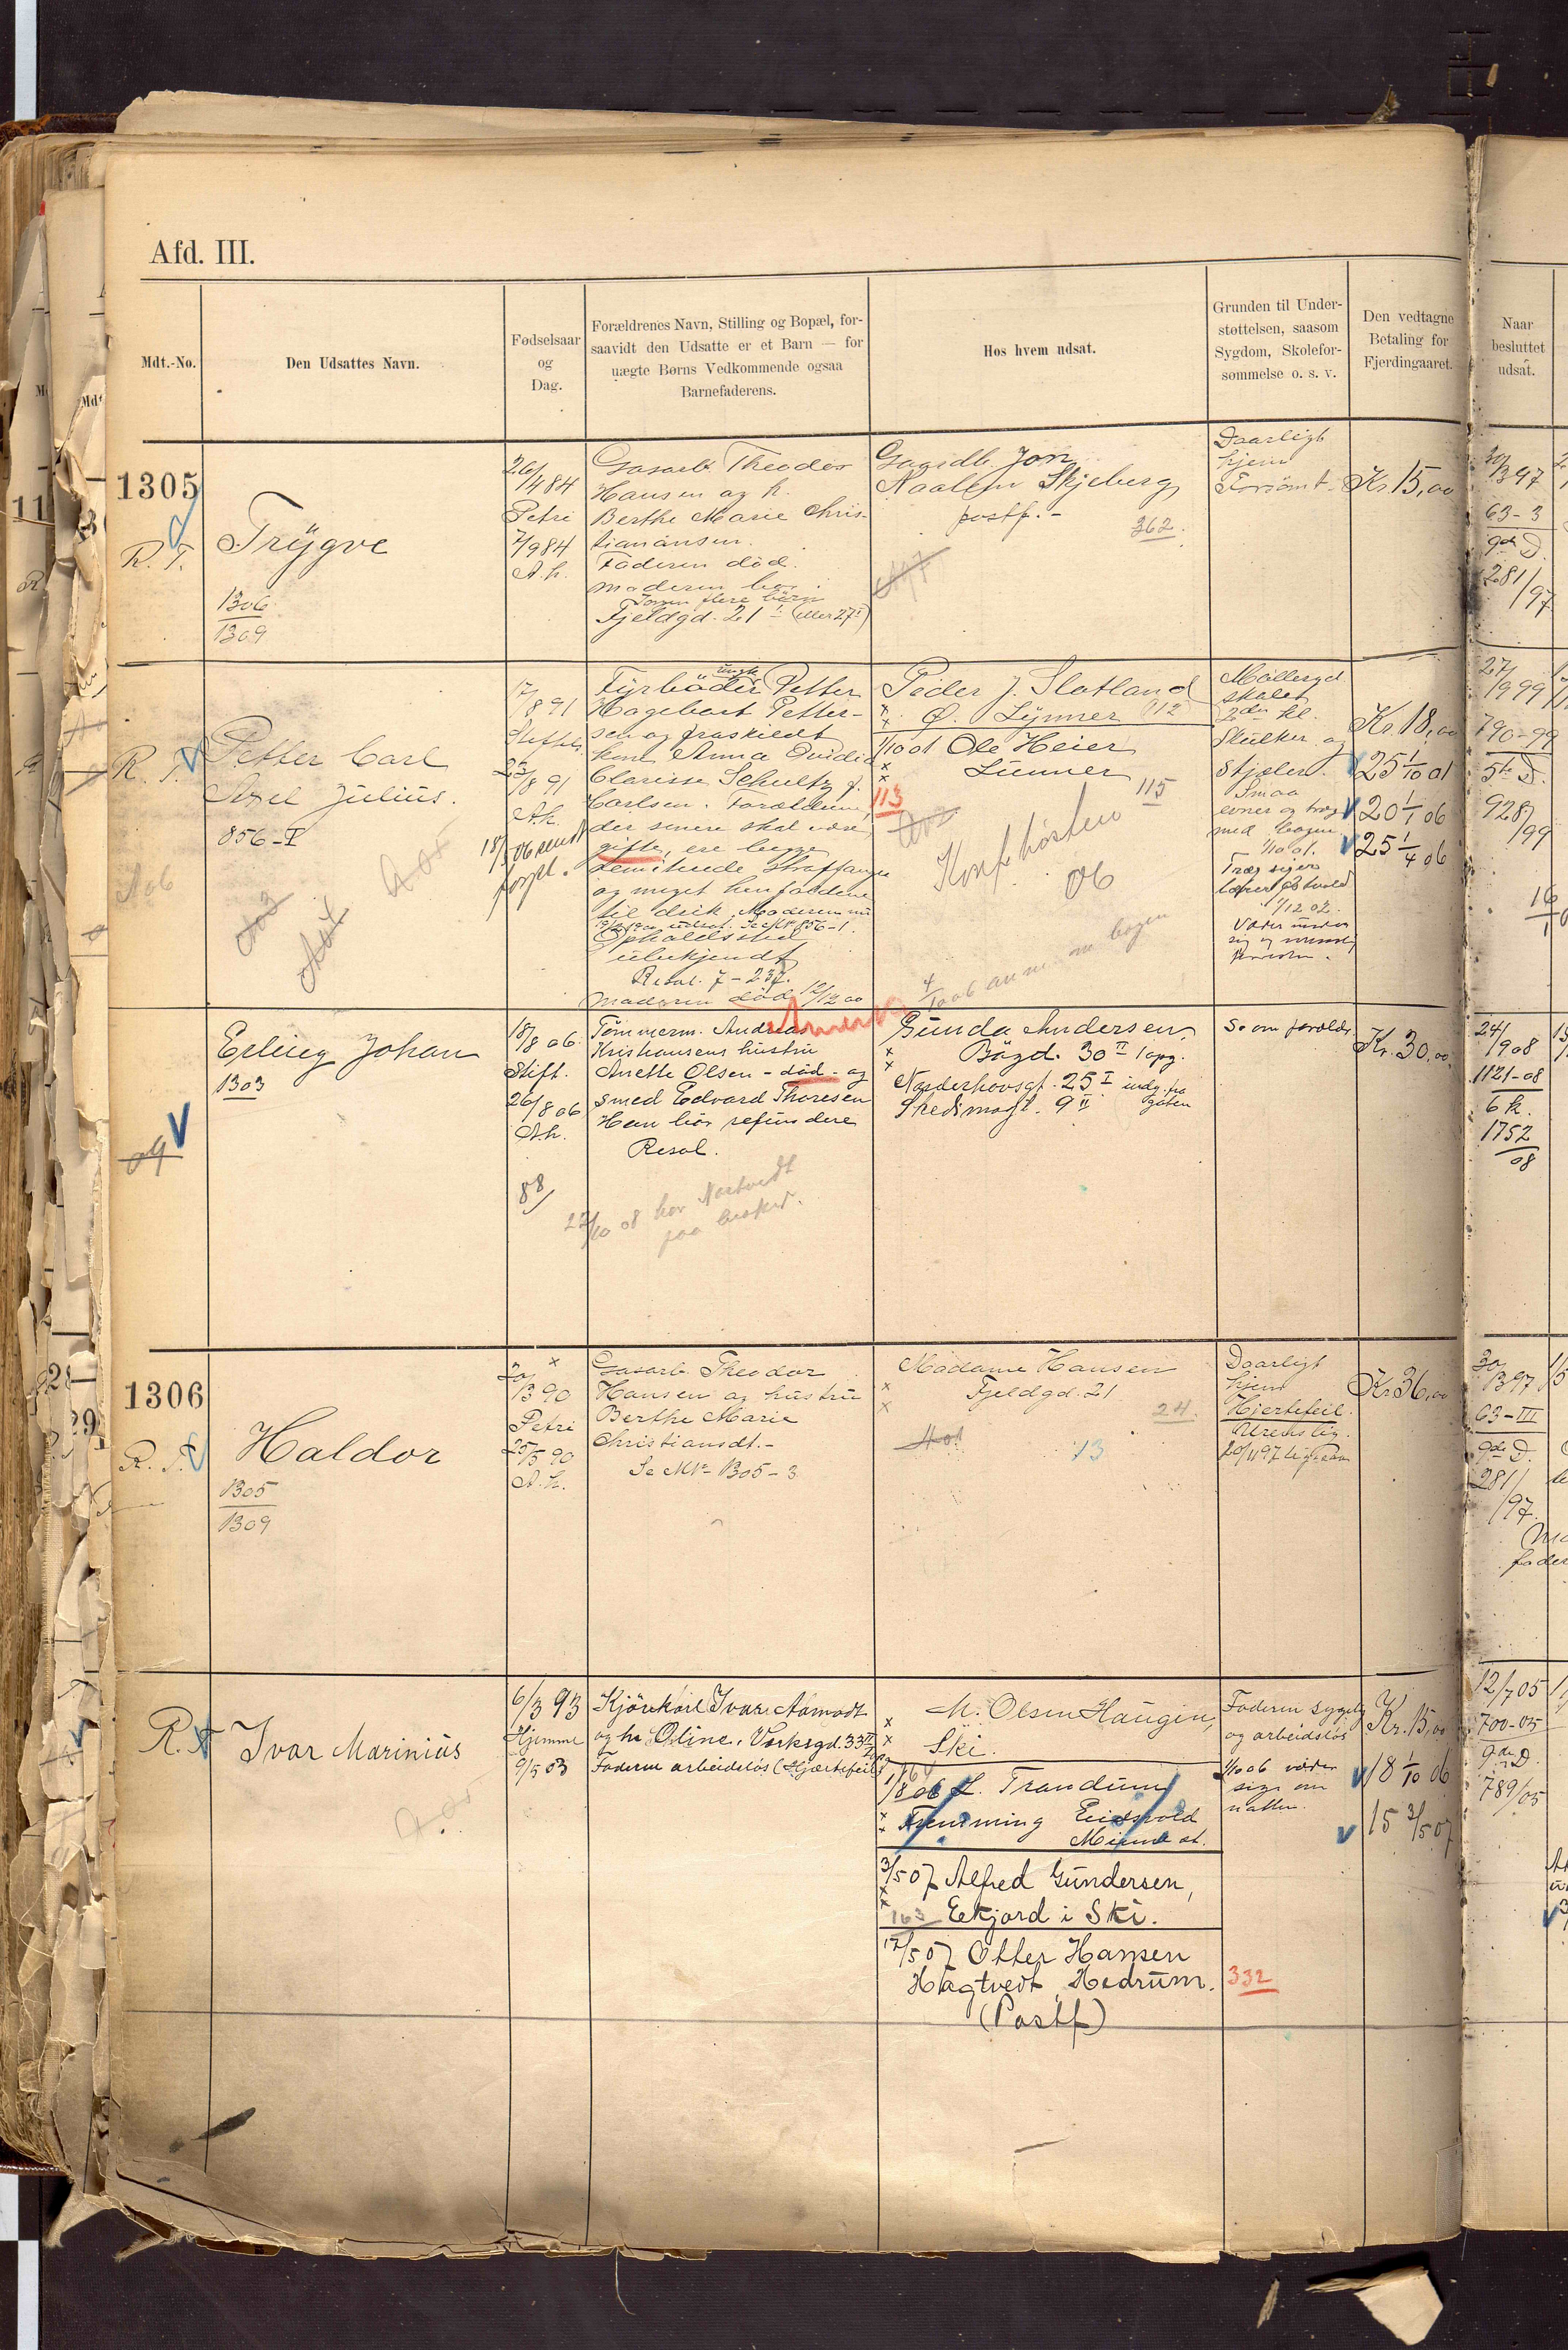 Afd. III.
Mdt.-No.
Den Udsattes Navn.
Fødselsaar
og
Dag.
Forældrenes Navn, Stilling og Bopæl, for-
saavidt den Udsatte er et Barn — for
uægte Børns Vedkommende ogsaa
Barnefaderens.
Hos hvem udsat.
Grunden til Under-
støttelsen, saasom
Sygdom, Skolefor-
sømmelse o. s. v.
Den vedtagne
Betaling for
Fjerdingaaret.
Naar
besluttet
udsat.
1305
R. T.
Trygve
1306
1309
26/4 84
Petri
7/9 84
A.h.
Gasarb. Theodor
Hansen og h.
Berthe Marie Chris-
tiansen.
Faderen död.
moderen har
flere börn
Fjeldgd. 21 I (eller 27 I)
Gaardb. Jon
Naalen Skjeberg
postf. -
362.
Daarligt
hjem
Forsömt
Kr. 15,00
30/3 97
63-3
9de D.
281/97
R. T.
Petter Carl
Axel Julius.
856-I
17/8 91
23/8 91
A.h.
Fyrböder Petter
Hagebart Petter-
sen og fraskildt
kone Anna Ovidia
Clarisse Schultz f.
Carlsen. Forældrene,
der senere skal være
gifte, ere begge
og meget henfaldne
til drik. Moderen nu
Opholdssted
ubekjendt
Resol. 7-237.
Moderen död 12/12 00
Peder J. Slotland
Ö. Lynner 112
1/10 01 Ole Heier
Lunner
115
113
Konf. hösten
06
Möllergd
skole
2den kl.
Skulker og
Stjæler.
Smaa
evner og træg
med bogen
1/10 01.
1/12 02.
Kr. 18,00
25 1/10 01
20 1/1 06
25 1/4 06
27/19 99
790-99
5te D.
928/99
Erling Johan
1303
18/8 06
Stift.
26/8 06
A.h.
88/
Tömmerm. Andreas
Kristiansens hustru
Anette Olsen - död - og
smed Edvard Thoresen
Han bör refundere
Resol.
22/10 08 hos Nortvedt
paa besök.
Gunda Andersen,
Bögd. 30 II 1 opg.
Norderhovsgt. 25 I indg. fra
gaten
Skedsmogt. 9 II
Se om forældr.
Kr. 30,00
24/19 08
1121-08
6 k.
1752/08
1306
R. T.
Haldor
1305
1309
20/3 90
Petri
25/5 90
A.h.
Gasarb. Theodor
Hansen og hustru
Berthe Marie
Christiansdt. -
Se M№ 1305-3
Madame Hansen
Fjeldgd. 21
24.
13
Daarligt
hjem
Hjertefeil.
Kr. 36,00
30/3 97
63-III
9de D.
281/97
R. T.
Ivar Marinius
6/3 93
Hjemme
9/5 03
Kjörekarl Ivar Aamodt
og h. Oline, Verksgd. 33 II
Faderen arbeidslös (Hjærtefeil)
M. Olsen Haugen,
Ski.
1/8 06 L. Trandum
Fremming Eidsvold
Minne st.
3/5 07 Alfred Gundersen,
163 Eekjord i Ski.
17/5 07 Otter Hansen
Hagtvedt, Hedrum.
(Postf)
332
Faderen sygelig
og arbeidslös
1/10 06 væder
sig om
natten.
Kr. 15,00
18 1/10 06
15 3/5 07
12/7 05
700-05
9de D.
789/05